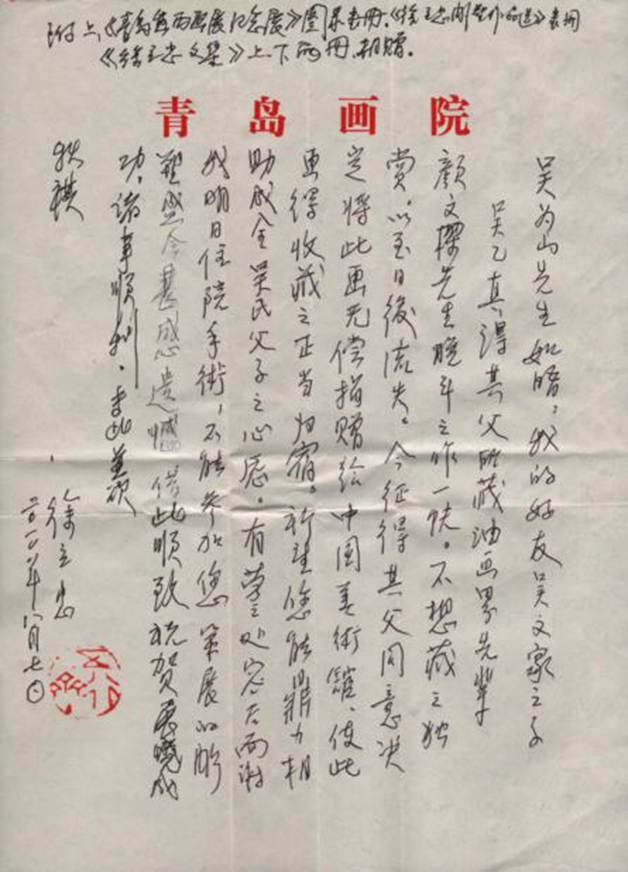 附上《青岛
展纪念展》图录壹册《徐立忠
》壹册
《徐立忠文集》上、下两册，相赠。
青岛画院
吴为山先生如晤，我的好友吴文家之子
吴乙真，得其父所藏油画界先辈
颜文樑先生晚年之作一帧。不想藏之独
赏，以至日後流失。今征得其父同意决
定将此画无偿捐赠给中国美術館，使此
画得收藏之正当归宿。祈望您能鼎力相
助成全吴氏父子之心愿。有劳之处容后面谢
我明日住院手術，不能参加您策展的雕
塑盛会甚感遗憾 借此顺致祝贺展
成
功，诸事顺利。专此并颂
秋祺
徐立忠
八月七日